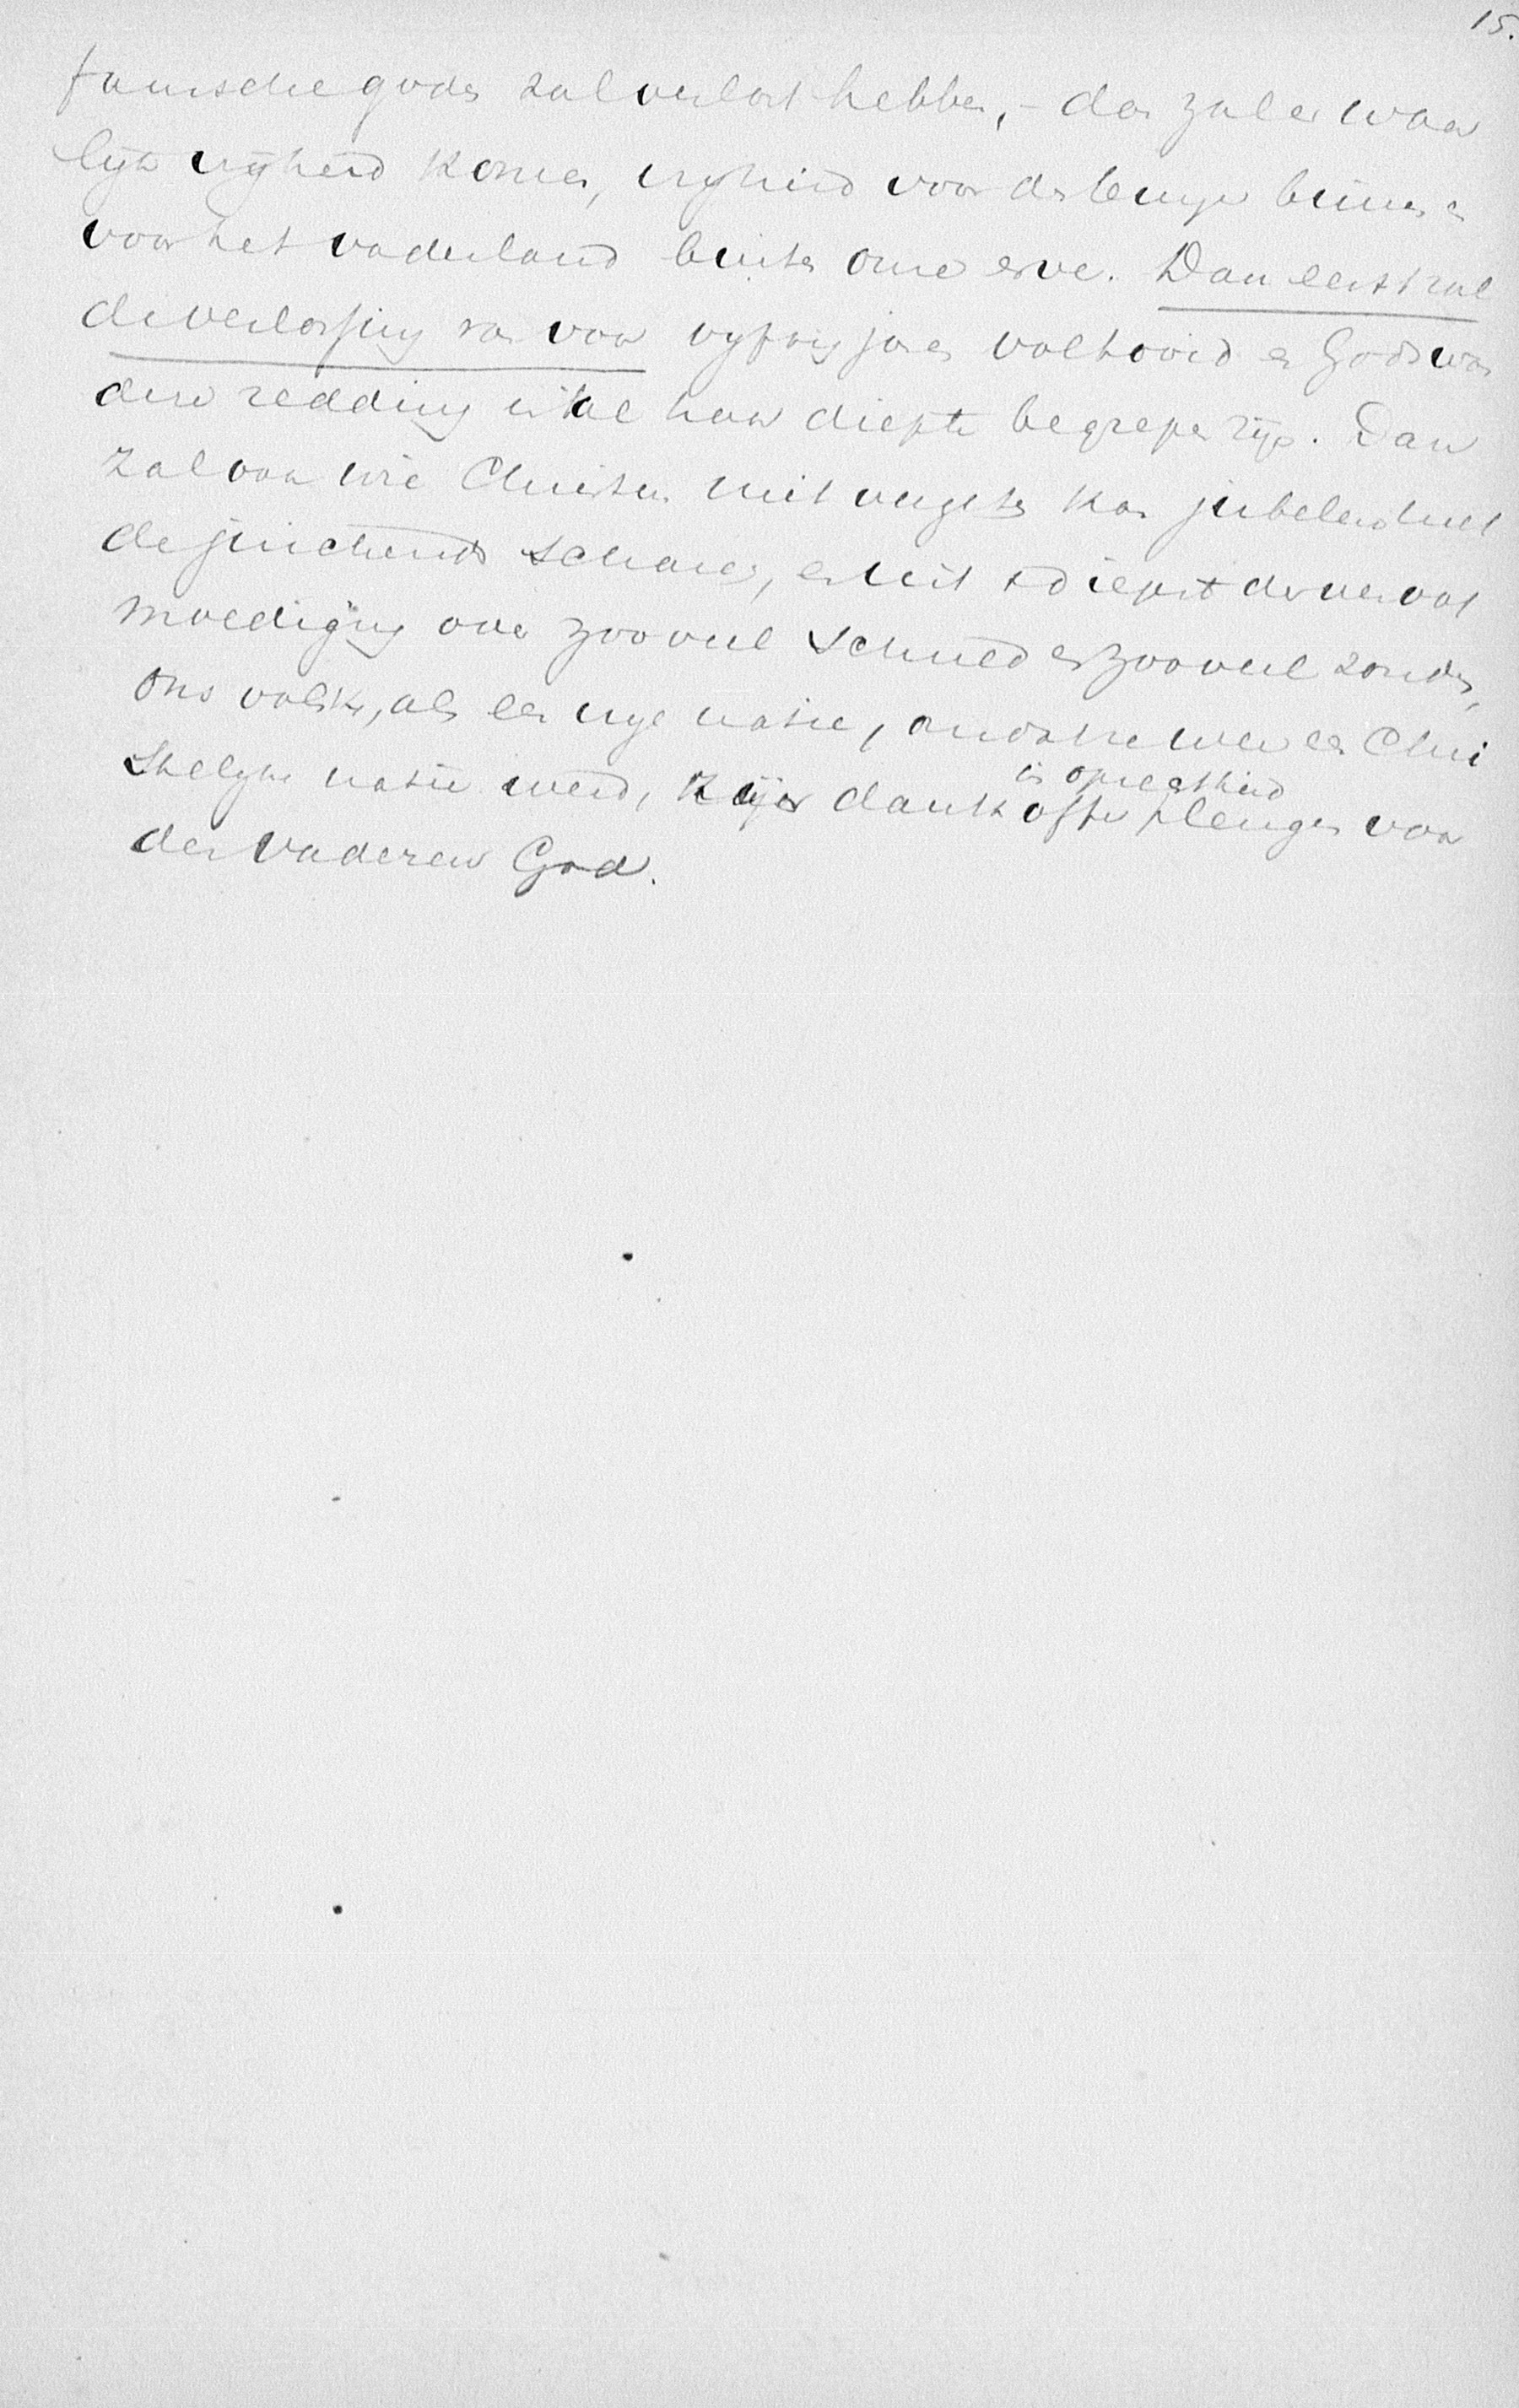 15.
fameuse goden zal verlost hebben, – dan zal er waar
lijk vrijheid komen, vrijheid voor de burgers binnen en
voor het vaderland buiten onze erve. Dan eerst zal
de verlossing van voor vijftig jaren voltooid en Gods won
dere redding in al haar diepte begrepen zijn. Dan
zal ook wie Christen niet vergeten kan jubelen met
de juichende scharen, en uit 't diepst der veroot
moediging over zooveel schuld en zooveel zonden,
ons volk, als een vrije natie, omdat het weer een Chri
stelijke natie werd, zijn dankoffer plengen voor
in oprechtheid
der Vaderen God.